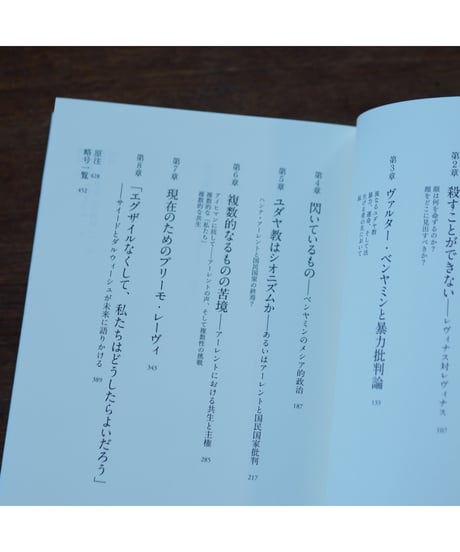 第2章
殺すことができない——レヴィナス対レヴィナス
顔は何を命ずるのか?
顔をどこに見出すべきか?
107
第3章
ヴァルター・ベンヤミンと暴力批判論
異なるユダヤ教
暴力、運命、そして法
133
第4章
閃いているもの——ベンヤミンのメシア的政治
187
第5章
ユダヤ教はシオニズムか——あるいはアーレントと国民国家批判
ハンナ・アーレントと国民国家の終焉?
217
第6章
複数的なるものの苦境——アーレントにおける共生と主権
アイヒマンに抗して——アーレントの声、そして複数性の挑戦
複数的な「私たち」
複数的な共生
285
第7章
現在のためのプリーモ・レーヴィ
343
第8章
「エグザイルなくして、私たちはどうしたらよいだろう」
——サイードとダルウィーシュが未来に語りかける
389
原注 428
略号一覧 452